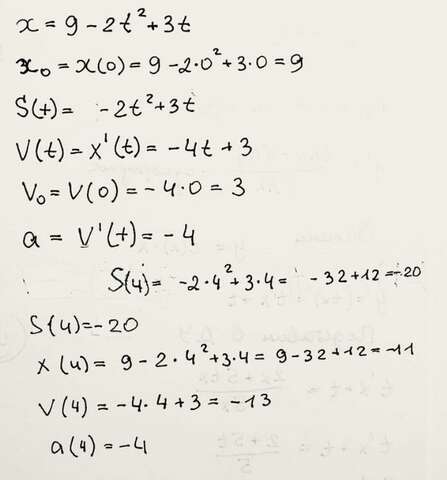 x = 9 - 2t² + 3t
x₀ = x(0) = 9 - 2·0² + 3·0 = 9
S(t) = -2t² + 3t
V(t) = x'(t) = -4t + 3
V₀ = V(0) = -4·0 = 3
a = V'(t) = -4
S(4) = -2·4² + 3·4 = -32 + 12 = -20
S(4) = -20
x(4) = 9 - 2·4² + 3·4 = 9 - 32 + 12 = -11
V(4) = -4·4 + 3 = -13
a(4) = -4